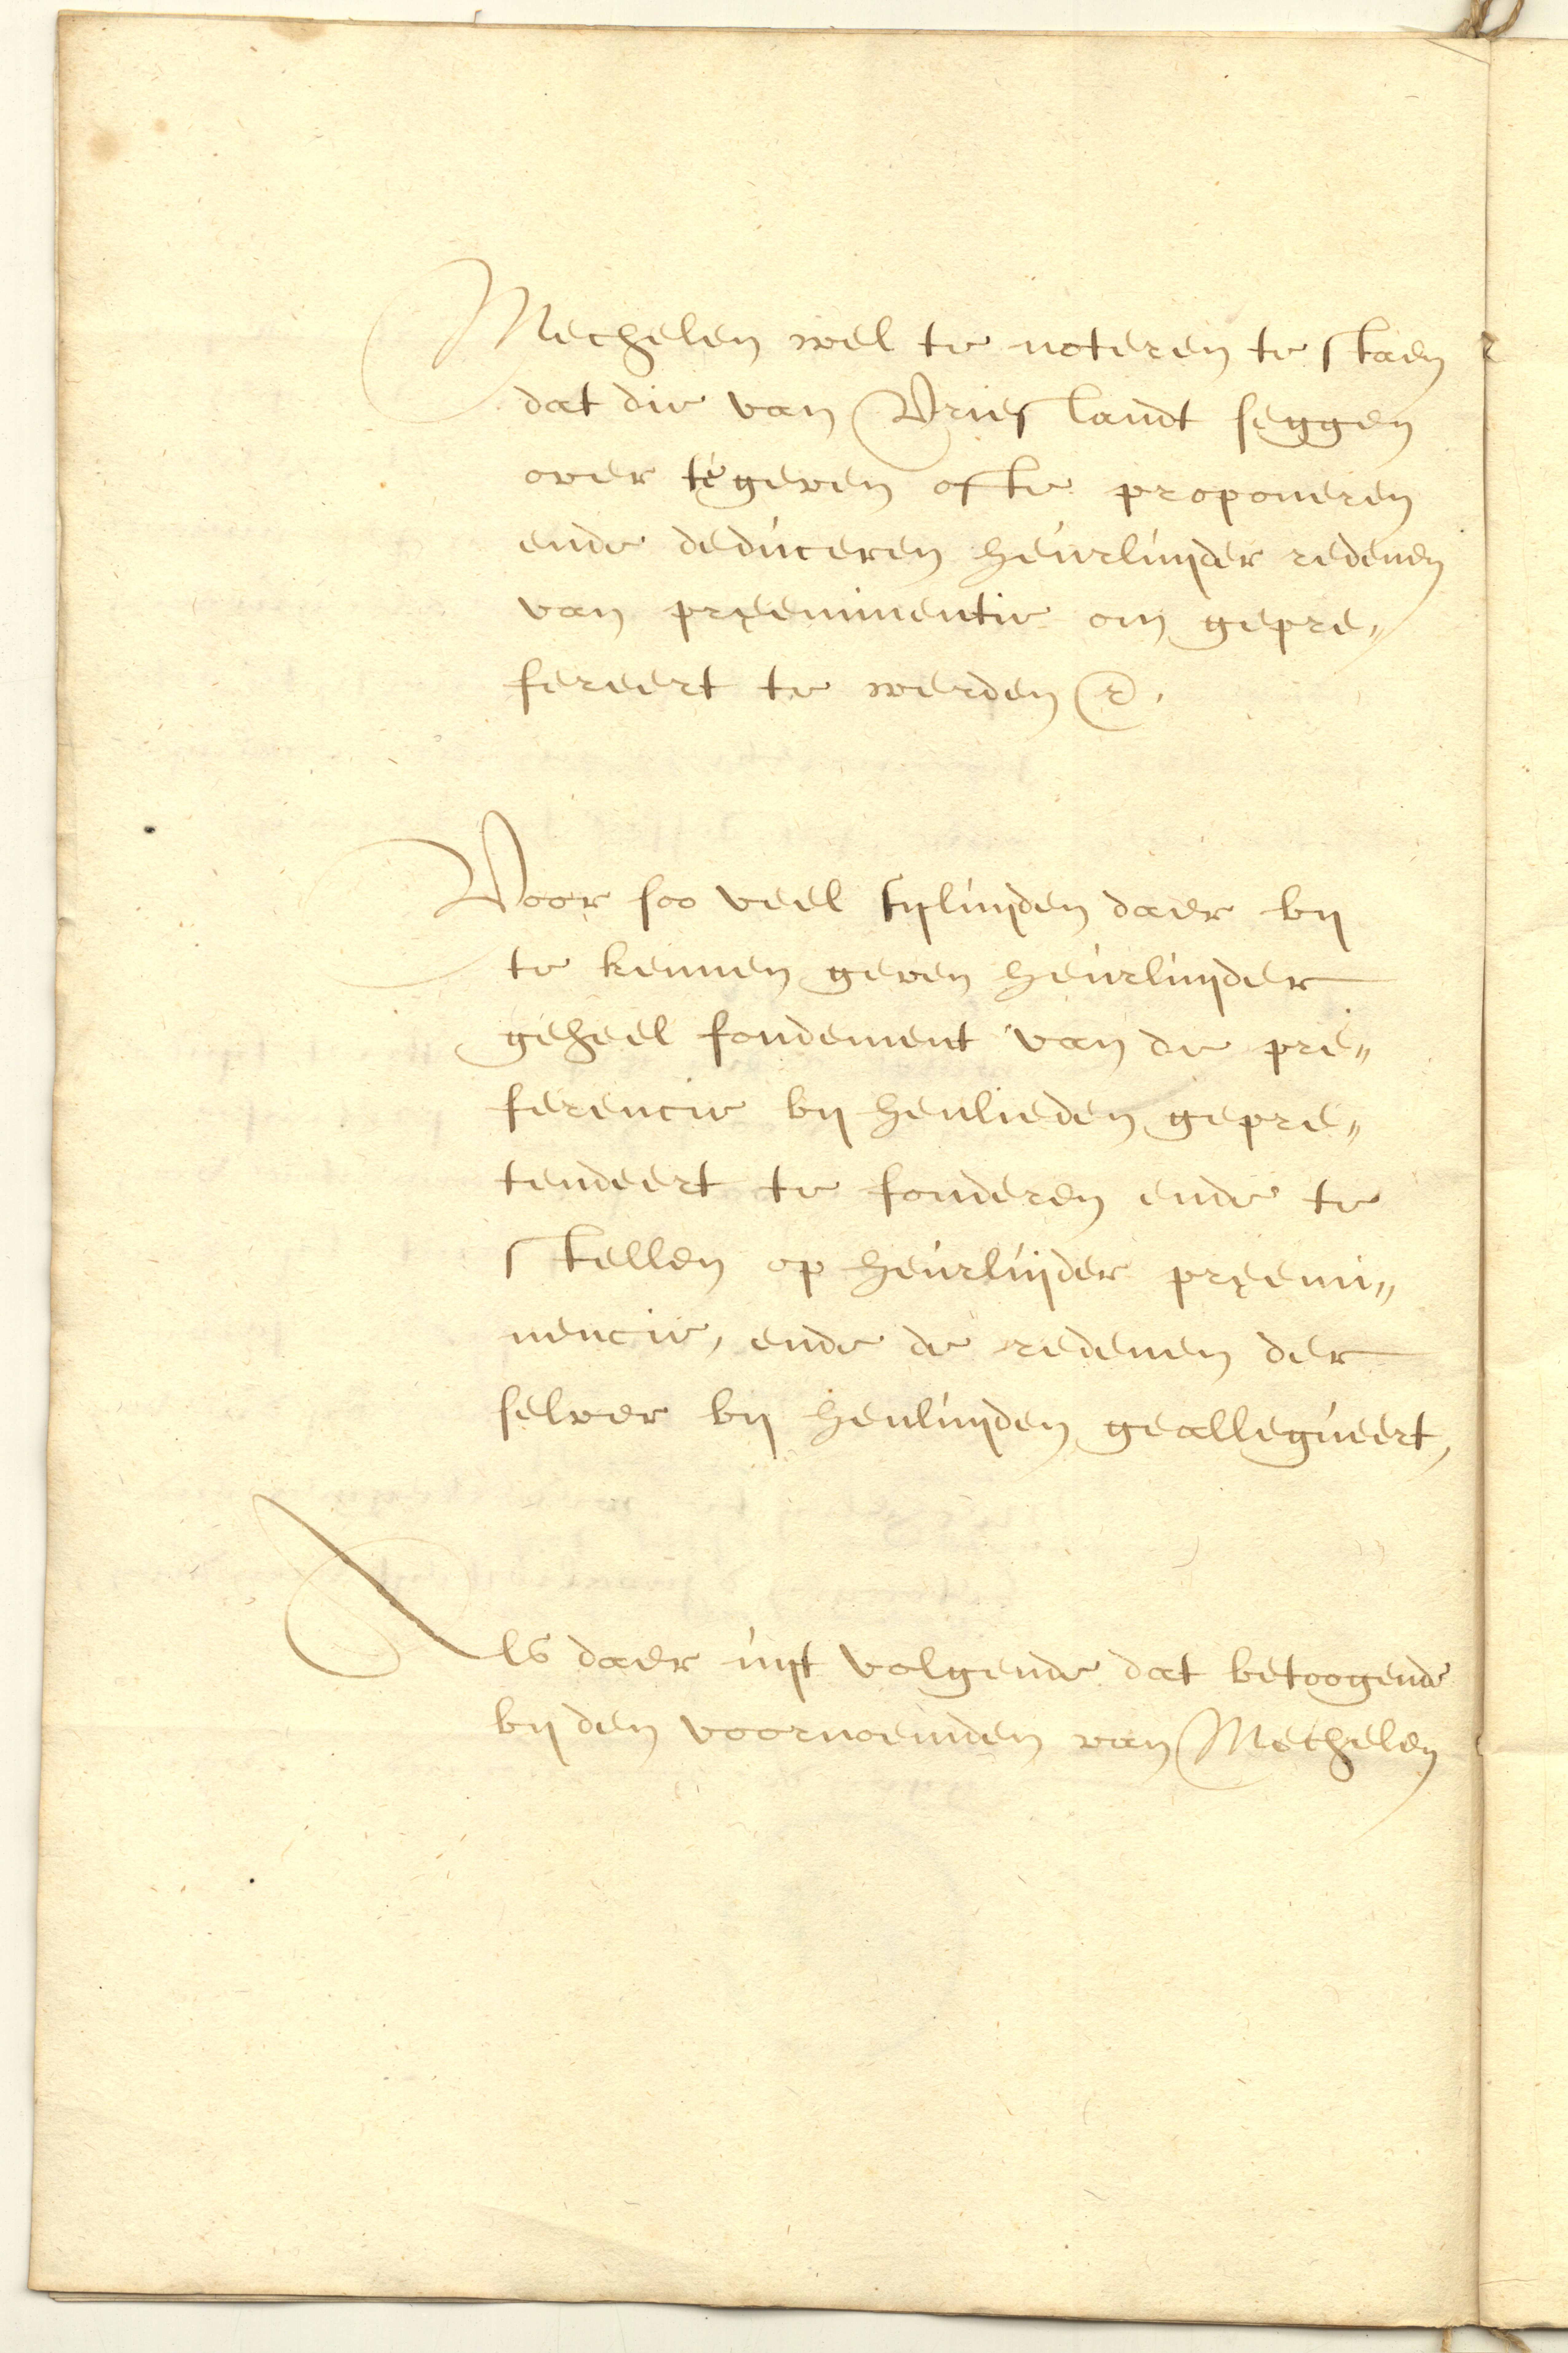 Mechelen wel te noteren te staen
dat die van Vrieslandt seggen
over te geven ofte proponeren
ende deduceren heurluijder redenen
van preeminentie om gepre„
fereert te werden &.
Voor soo veel sijluijden daer bij
te kennen geven heurluijder
geheel fondement van de pre„
ferencie bij henlieden gepre„
tendeert te fonderen ende te
stellen op heurluijder preemi„
nencie, ende de redenen der
selver bij henluijden geallegueert,
Als daer uijt volgende dat betoogende
bij den voornoemden van Mechelen